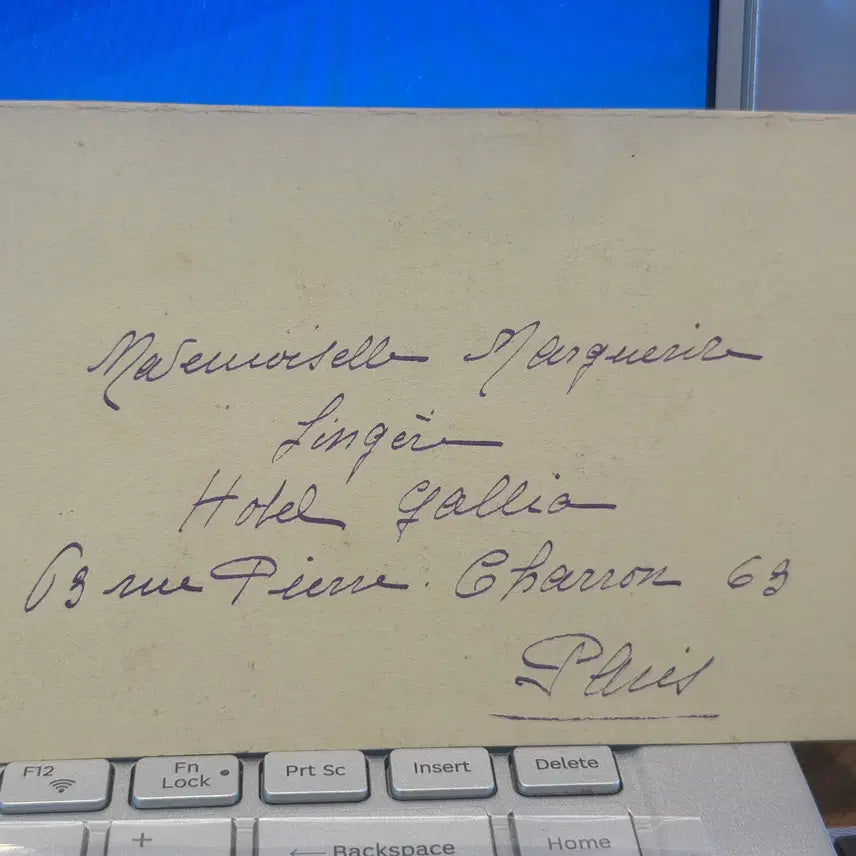 Mademoiselle Marguerite
Lingère
Hotel Gallia
63 rue Pierre. Charron 63
Paris
F12
Fn Lock
Prt Sc
Insert
Delete
+
← Backspace
Home